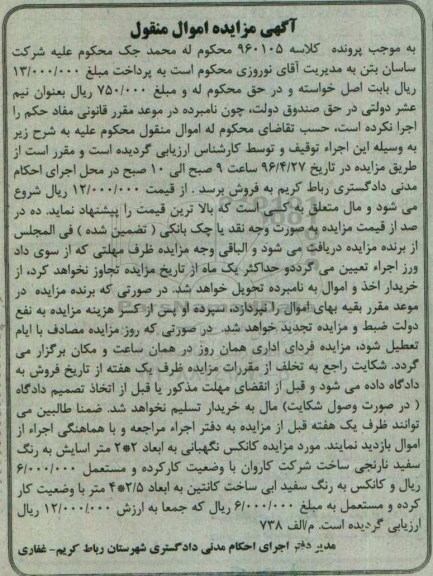 آگهی مزایده اموال منقول
به موجب پرونده کلاسه ۹۶۰۱۰۵ محکوم له محمد جک محکوم علیه شرکت
ساسان بتن به مدیریت آقای نوروزی محکوم است به پرداخت مبلغ ۱۳/۰۰۰/۰۰۰
ریال بابت اصل خواسته و در حق محکوم له و مبلغ ۷۵۰/۰۰۰ ریال بعنوان نیم
عشر دولتی در حق صندوق دولت، چون نامبرده در موعد مقرر قانونی مفاد حکم را
اجرا نکرده است، حسب تقاضای محکوم له اموال منقول محکوم علیه به شرح زیر
به وسیله این اجراء توقیف و توسط کارشناس ارزیابی گردیده است و مقرر است از
طریق مزایده در تاریخ ۹۶/۴/۲۷ ساعت ۹ صبح الی ۱۰ صبح در محل اجرای احکام
مدنی دادگستری رباط کریم به فروش برسد . از قیمت ۱۲/۰۰۰/۰۰۰ ریال شروع
می شود و مال متعلق به کلی است که بالا ترین قیمت را پیشنهاد نماید. ده در
صد از قیمت مزایده به صورت وجه نقد یا چک بانکی ( تضمین شده ) فی المجلس
از برنده مزایده دریافت می شود و الباقی وجه مزایده ظرف مهلتی که از سوی داد
ورز اجراء تعیین می گرددو حداکثر یک ماه از تاریخ مزایده تجاوز نخواهد کرد، از
خریدار اخذ و اموال به نامبرده تحویل خواهد شد. در صورتی که برنده مزایده در
موعد مقرر بقیه بهای اموال را نپردازد، سپرده او پس از کسر هزینه مزایده به نفع
دولت ضبط و مزایده تجدید خواهد شد. در صورتی که روز مزایده مصادف با ایام
تعطیل شود، مزایده فردای اداری همان روز در همان ساعت و مکان برگزار می
گردد. شکایت راجع به تخلف از مقررات مزایده ظرف یک هفته از تاریخ فروش به
دادگاه داده می شود و قبل از انقضای مهلت مذکور یا قبل از اتخاذ تصمیم دادگاه
( در صورت وصول شکایت) مال به خریدار تسلیم نخواهد شد. ضمنا طالبین می
توانند ظرف یک هفته قبل از مزایده به دفتر اجراء مراجعه و با هماهنگی اجراء از
اموال بازدید نمایند. مورد مزایده کانکس نگهبانی به ابعاد ۲*۲ متر اسایش به رنگ
سفید نارنجی ساخت شرکت کاروان با وضعیت کارکرده و مستعمل ۶/۰۰۰/۰۰۰
ریال و کانکس به رنگ سفید ابی ساخت کانتین به ابعاد ۲/۵*۴ متر با وضعیت کار
کرده و مستعمل به مبلغ ۶/۰۰۰/۰۰۰ ریال که جمعا به ارزش ۱۲/۰۰۰/۰۰۰ ریال
ارزیابی گردیده است. م/الف ۷۳۸
مدیر دفتر اجرای احکام مدنی دادگستری شهرستان رباط کریم- غفاری